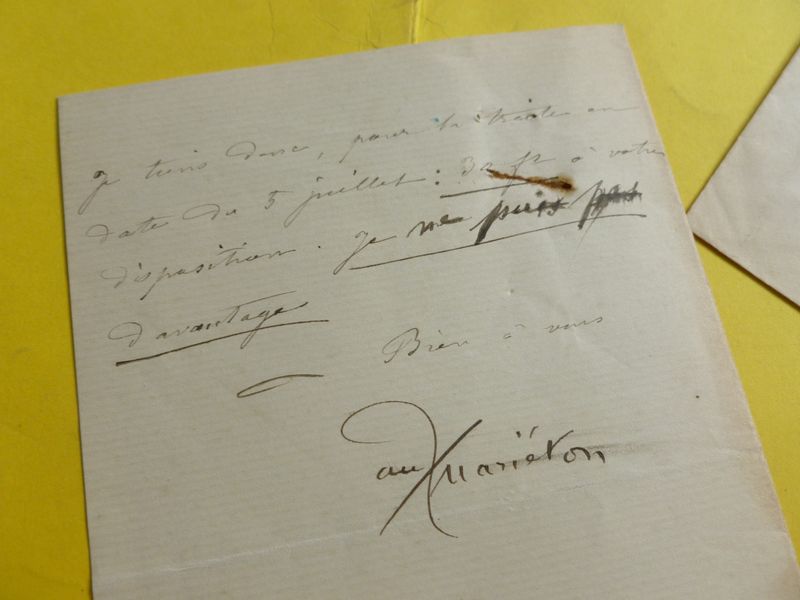 je tiens donc, pour la traite en
date du 5 juillet : 32 fr à votre
disposition. je ne puis pas
davantage
Bien à vous
Mariéton